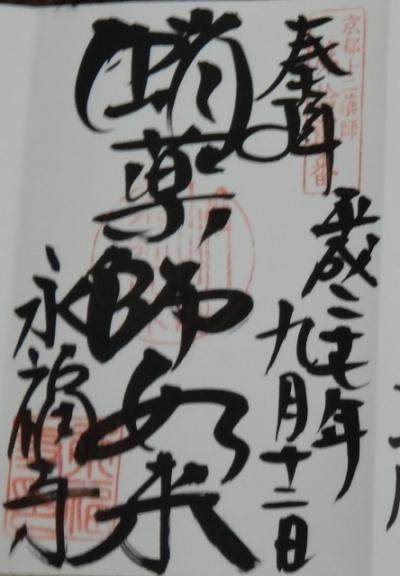 京都十二薬師
奉拝
平成二十七年
九月十二日
蛸薬師如来
永福寺